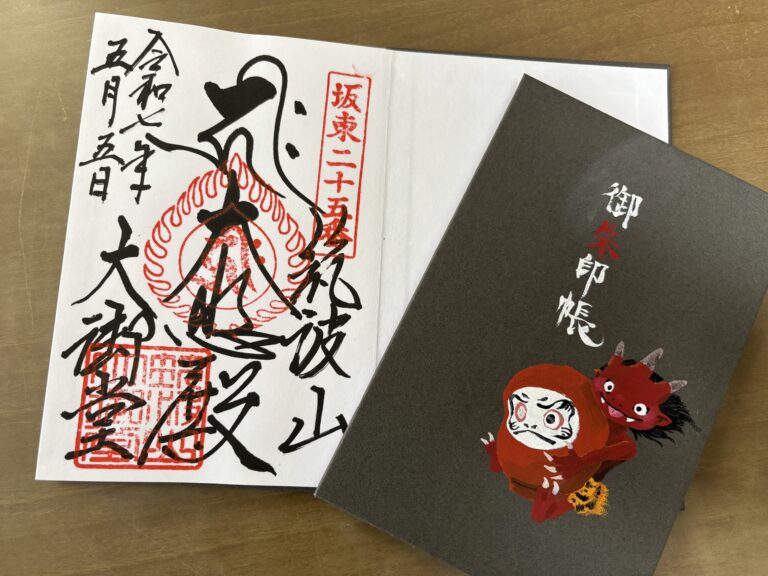 坂東二十五番
筑波山
大悲殿
令和七年
五月五日
大御堂
御朱印帳